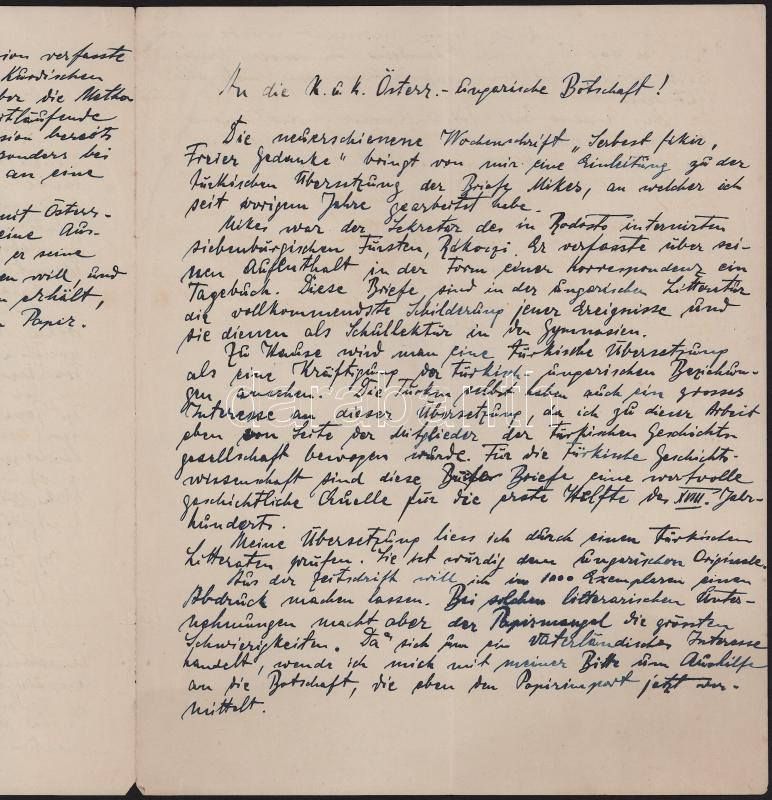 ion verfasste
Kurdischen
ber die Metho
itlaufende
sion bereits
sonders bei
an eine
mit Österr-
eine Aus-
er seine
en will, und
n erhält,
n Papir.
An die K. u. K. Österr.-ungarische Botschaft!
Die neuerschienene Wochenschrift „Serbest fikir,
Freier Gedanke" bringt von mir eine Einleitung zu der
türkischen Übersetzung der Briefe Mikes, an welcher ich
seit vorigem Jahre gearbeitet habe.
Mikes war der Sekretär des in Rodosto internirten
siebenbürgischen Fürsten, Rákoczi. Er verfasste über sei-
nen Aufenthalt in der Form einer Korrespondenz ein
Tagebuch. Diese Briefe sind in der ungarischen Litteratur
die vollkommendste Schilderung jener Ereignisse und
sie dienen als Schullektür in den Gymnasien.
Zu Hause wird man eine türkische Übersetzung
als eine Kräftigung der türkisch ungarischen Beziehun-
gen ansehen. Die Türken selbst haben auch ein grosses
Interesse an dieser Übersetzung, da ich zu dieser Arbeit
eben von Seite der Mitglieder der türkischen Geschichts
gesellschaft bewogen wurde. Für die türkische Geschichts-
wissenschaft sind diese Briefe eine wertvolle
geschichtliche Quelle für die erste Hälfte des XVIII. Jahr-
hunderts.
Meine Übersetzung liess ich durch einen türkischen
Litteraten prüfen. Sie ist würdig dem ungarischen Originale.
Aus der Zeitschrift will ich in 1000 Exemplaren einen
Abdruck machen lassen. Bei solchen litterarischen Unter-
nehmungen macht aber der Papirmangel die grössten
Schwierigkeiten. Da sich um ein vaterländisches Interesse
handelt, wende ich mich mit meiner Bitte um Aushilfe
an die Botschaft, die eben den Papirimport jetzt ver-
mittelt.
darabanth